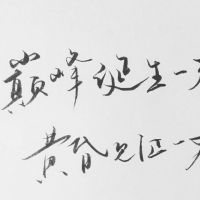 巅峰诞生一
黄昏见证一